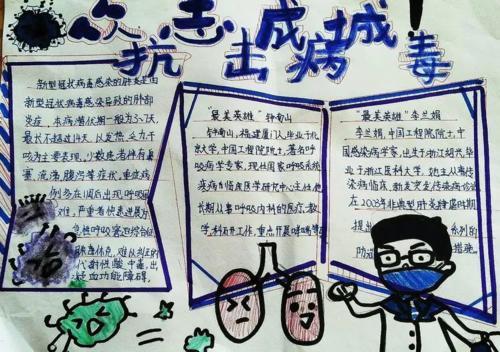 众志成城
抗击病毒!
新型冠状病毒感染的肺炎是由
新型冠状病毒感染导致的肺部
炎症,本病潜伏期一般为3-7天,
最长不超过14天,以发热,乏力,干
咳为主要表现,少数患者伴有鼻
塞,流涕,腹泻等症状,重症病
例多在1周后出现呼吸困
难,严重者快速进展为
急性呼吸窘迫综合征
难以纠正的
代谢性酸中毒,出
凝血功能障碍。
"最美英雄"钟南山
钟南山,福建厦门人,毕业于北
京大学,中国工程院院士,著名呼
吸病学专家,现任国家呼吸系统
疾病临床医学研究中心主任,他
长期从事呼吸内科的医疗,教
学,科研工作,重点开展哮喘
"最美英雄"李兰娟
李兰娟,中国工程院院士,中
国感染病学家,出生于浙江绍兴,毕
业于浙江医科大学,她主从事传
染病临床,
在2003年非典型肺炎肆虐时期
提出
系列的
防治
措施。